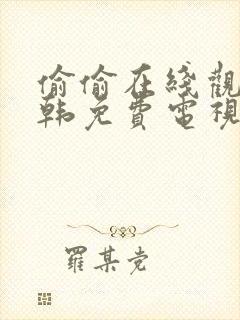 偷偷在綫觀
韩免費電視
羅某党